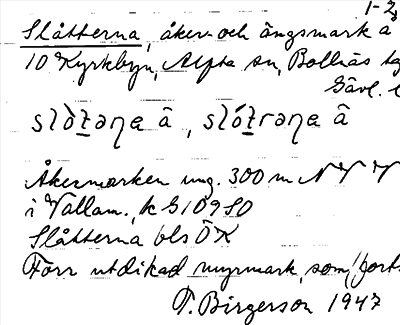 1-2
Slåtterna, åker och ängsmark å
10 Kyrkbyn, Alfta sn, Bollnäs
Gävl. l
Åkermarken ung. 300 m N V V
i Vallam., k G 109 SO
Slåtterna bls ÖK
Förr utdikad myrmark, som
T. Birgerson 1947